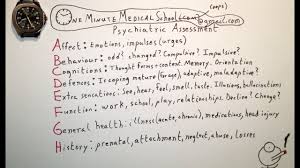 (oops)
One Minute Medical School.com @gmail.com
Psychiatric Assessment
Affect: Emotions, impulses (urges)
Behaviour: odd? changed? Compulsive? Impulsive?
Cognitions: Thought form + content. Memory. Orientation
Defences: Is coping mature (for age), adaptive, maladaptive?
Extra sensations: See, hear, feel, smell, taste. Illusions, hallucinations
Function: work, school, play, relationships. Decline? Change?
General health: illness (acute, chronic), medications, head injury
History: prenatal, attachment, neglect, abuse, losses